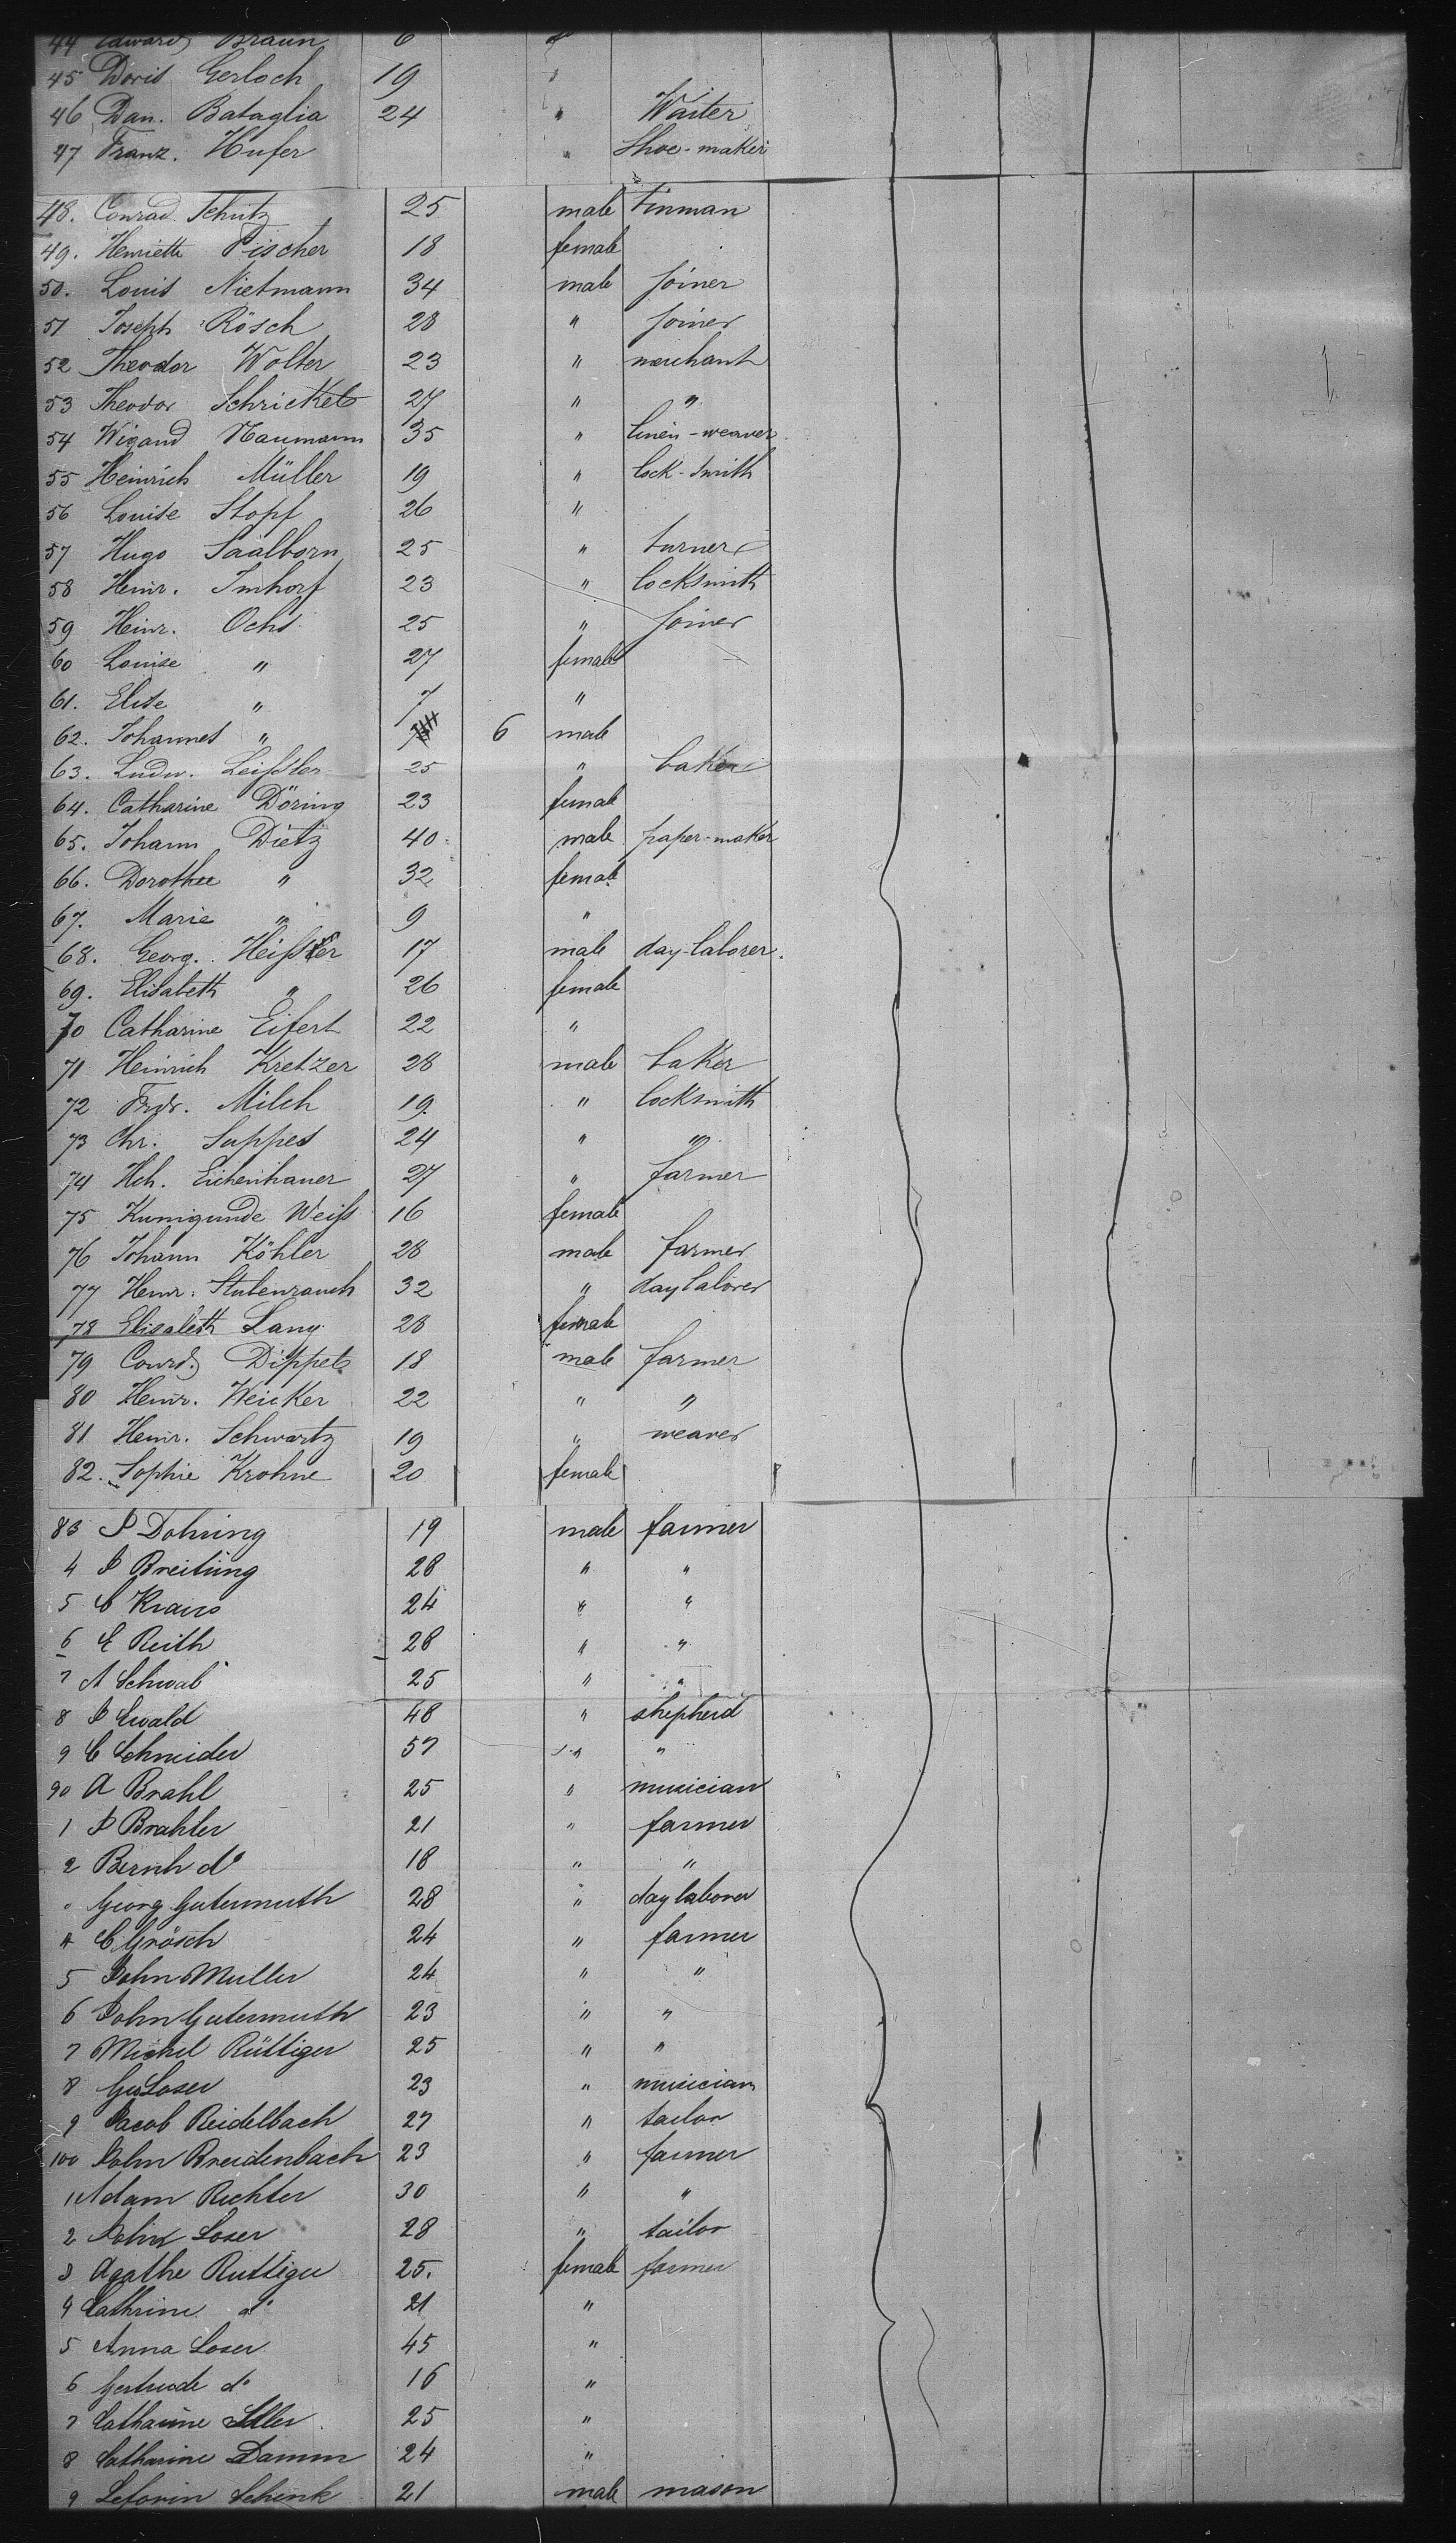 44 Edward Braun 6 "
45 Doris Gerloch 19 "
46 Dan. Bataglia 24 " Waiter
47 Franz. Hufer " Shoe-maker
48. Conrad Schutz 25 male tinman
49. Henriette Fischer 18 female
50. Louis Nietmann 34 male joiner
51 Joseph Rösch 28 " joiner
52 Theodor Wolter 23 " merchant
53 Theodor Schrickel 27 " "
54 Wigand Naumann 35 " linen-weaver
55 Heinrich Müller 19 " lock-smith
56 Louise Stopf 26 "
57 Hugo Saalborn 25 " turner
58 Heinr. Imhorf 23 " locksmith
59 Heinr. Ochs 25 " joiner
60 Louise " 27 female
61. Elise " 7 "
62. Johannes " 6 male
63. Ludw. Leißler 25 " baker
64. Catharine Döring 23 female
65. Johann Dietz 40 male paper-maker
66. Dorothee " 32 female
67. Marie " 9 "
68. Georg. Heißler 17 male day-laborer.
69. Elisabeth " 26 female
70 Catharine Eifert 22 "
71 Heinrich Kretzer 28 male baker
72 Frdr. Milch 19. " locksmith
73 Chr. Suppes 24 " "
74 Hch. Eichenhauer 27 " farmer
75 Kunigunde Weiß 16 female
76 Johann Köhler 28 male farmer
77 Heinr. Stubenrauch 32 " day laborer
78 Elisabeth Lang 28 female
79 Conrd. Dippel 18 male farmer
80 Heinr. Weicker 22 " "
81 Heinr. Schwartz 19 " weaver
82. Sophie Krohne 20 female
83 J Dohring 19 male farmer
4 J Breitung 28 " "
5 C Kraus 24 " "
6 E Reith 28 " "
7 A Schwab 25 " "
8 J Ewald 48 " shepherd
9 C Schneider 57 " "
90 A Brahl 25 " musician
1 J Brahler 21 " farmer
2 Bernh do 18 " "
" Georg Gutermuth 28 " day laborer
4 C Grösch 24 " farmer
5 John Muller 24 " "
6 John Gutermuth 23 " "
7 Michel Rüttiger 25 " "
8 Loser 23 " musician
9 Jacob Reidelbach 27 " tailor
100 John Breidenbach 23 " farmer
1 Adam Richter 30 " "
2 Loser 28 " tailor
3 Agathe Ruttiger 25. female farmer
4 Cathrine do 21 "
5 Anna Loser 45 "
6 Gertrude do 16 "
7 Catharine 25 "
8 Catharine Damm 24 "
9 Schenk 21 male mason